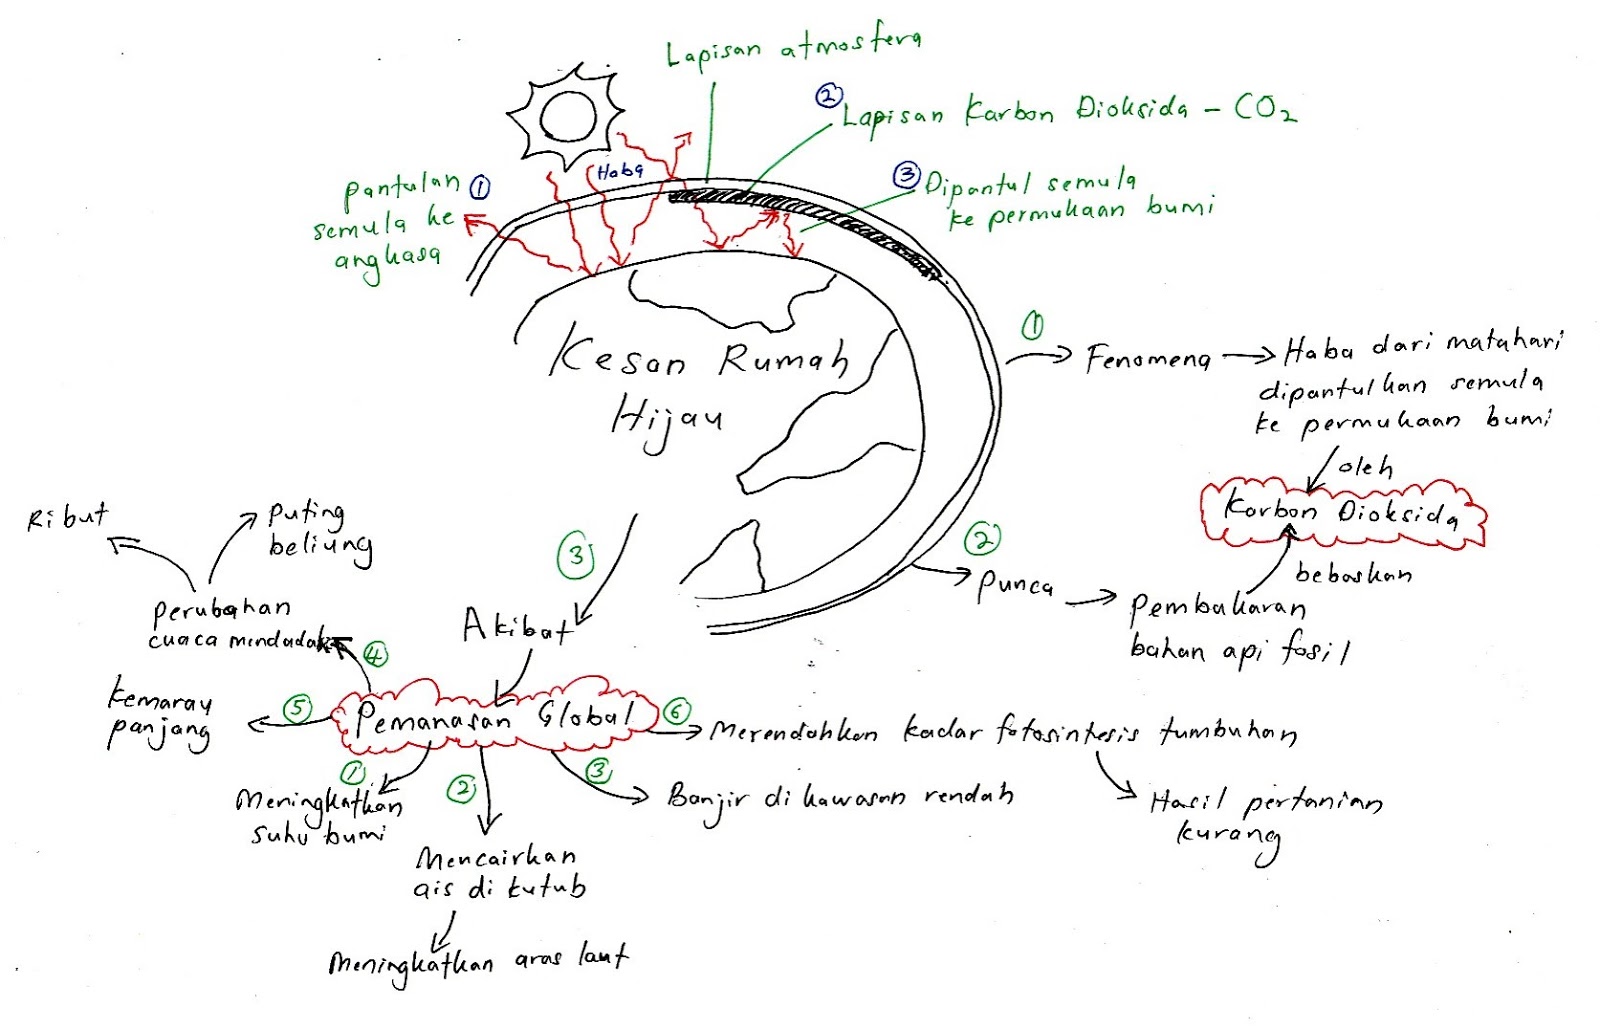 Lapisan atmosfera
② Lapisan Karbon Dioksida - CO₂
Haba
Pantulan ①
semula ke
angkasa
③ Dipantul semula
ke permukaan bumi
Kesan Rumah
Hijau
①
Fenomena
Haba dari matahari
dipantulkan semula
ke permukaan bumi
oleh
Karbon Dioksida
bebaskan
②
Punca
Pembakaran
bahan api fosil
③
Akibat
Pemanasan Global
①
Meningkatkan
suhu bumi
②
Mencairkan
ais di kutub
Meningkatkan aras laut
③
Banjir di kawasan rendah
④
Perubahan
cuaca mendadak
Ribut
Puting
beliung
⑤
Kemarau
panjang
⑥
Merendahkan kadar fotosintesis tumbuhan
Hasil pertanian
kurang